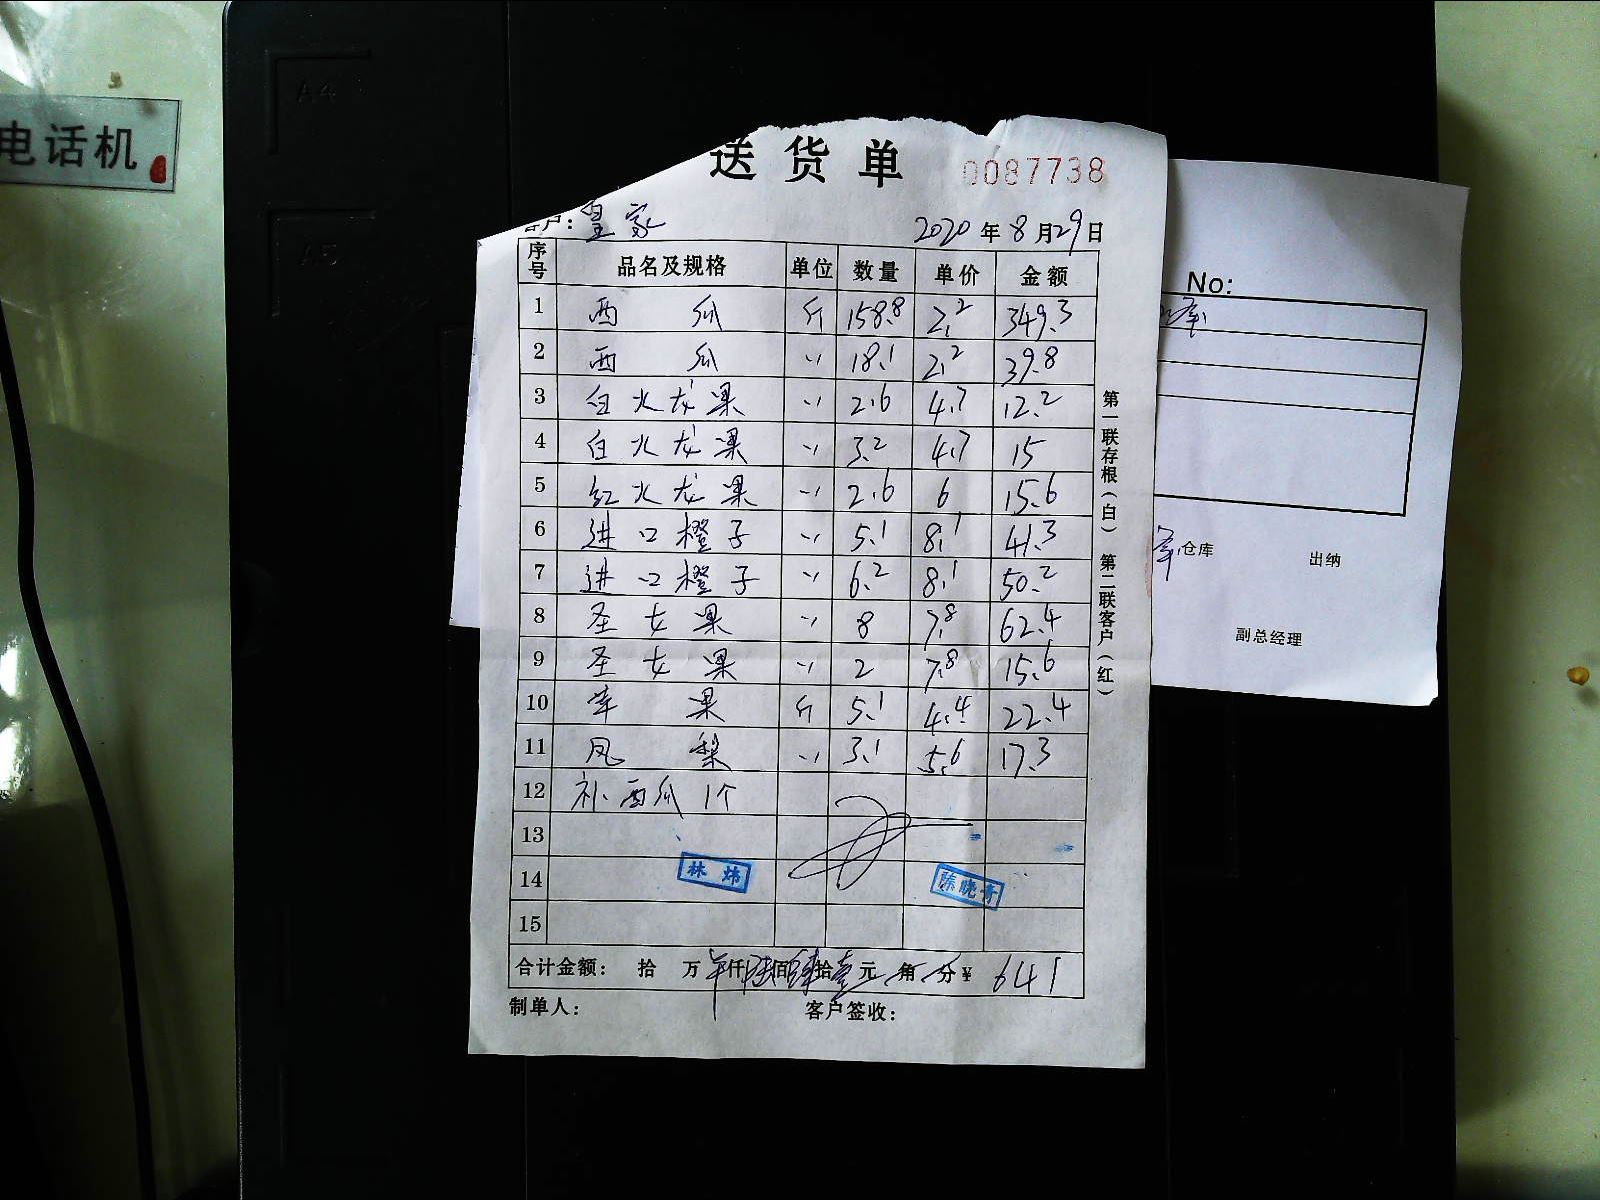 A4
A5
电话机
送货单 0087738
客户：皇家 2020年8月29日
序号 品名及规格 单位 数量 单价 金额
1 西瓜 斤 158.8 2.2 349.3
2 西瓜 〃 18.1 2.2 39.8
3 白火龙果 〃 2.6 4.7 12.2
4 白火龙果 〃 3.2 4.7 15
5 红火龙果 〃 2.6 6 15.6
6 进口橙子 〃 5.1 8.1 41.3
7 进口橙子 〃 6.2 8.1 50.2
8 圣女果 〃 8 7.8 62.4
9 圣女果 〃 2 7.8 15.6
10 苹果 斤 5.1 4.4 22.4
11 凤梨 〃 3.1 5.6 17.3
12 补西瓜1个
13
14 林炜 陈晓青
15
合计金额： 拾 万 仟陆佰肆拾壹元 角 分 ¥ 641
制单人： 客户签收：
第一联存根（白） 第二联客户（红）
No:
库
仓库 出纳
副总经理